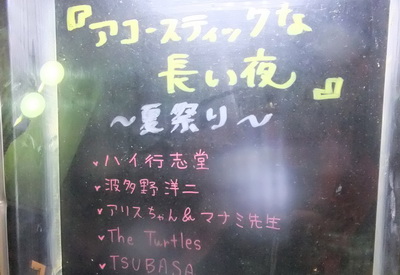 『アコースティックな
長い夜』
～夏祭り～
ハイ行志堂
波多野洋二
アリスちゃん&マナミ先生
The Turtles
TSUBASA